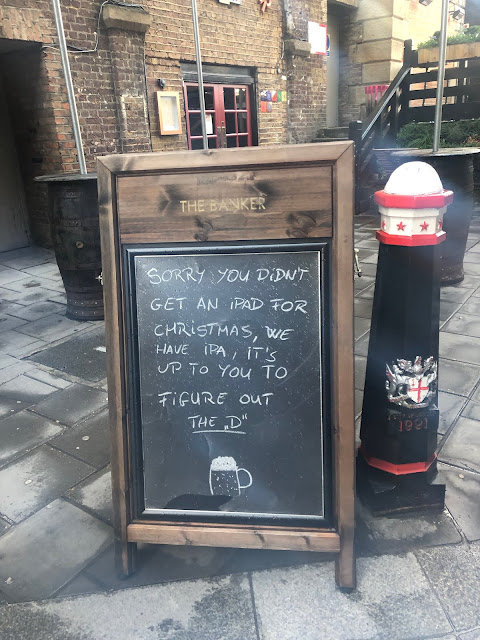 THE BANKER
SORRY YOU DIDN'T
GET AN iPAD FOR
CHRISTMAS, WE
HAVE IPA, IT'S
UP TO YOU TO
FIGURE OUT
THE „D"